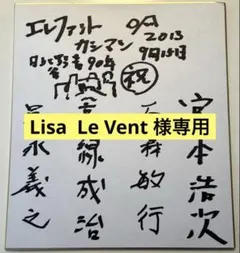 エレファント
カシマシ
2013
9月15日
日比谷
野音90年
祝
Lisa Le Vent 様専用
宮本浩次
石森敏行
高緑成治
冨永義之